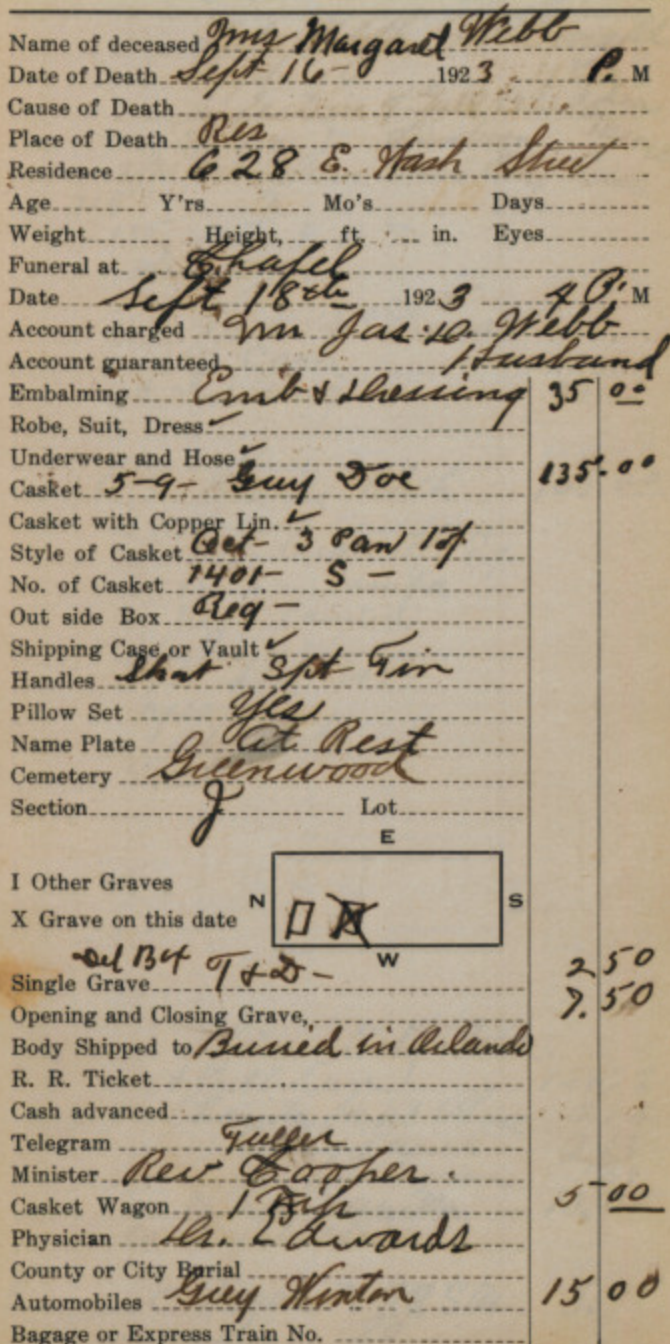 Name of deceased Mrs Margaret Webb
Date of Death Sept 16 - 1923 P. M
Cause of Death
Place of Death Res
Residence 628 E. Wash Street
Age Y'rs Mo's Days
Weight Height, ft. in. Eyes
Funeral at Chapel
Date Sept 18th 1923 4 P. M
Account charged Mr Jas. D. Webb
Account guaranteed Husband
Embalming Emb & Dressing 35 00
Robe, Suit, Dress ✓
Underwear and Hose ✓
Casket 5-9- Grey Doe 135.00
Casket with Copper Lin. ✓
Style of Casket Oct - 3 Pan
No. of Casket 1401 - S -
Out side Box Reg -
Shipping Case or Vault ✓
Handles Short Fin
Pillow Set Yes
Name Plate At Rest
Cemetery Greenwood
Section J Lot
E
I Other Graves
N S
X Grave on this date
W
Del Bx T & D - 2 50
Single Grave
Opening and Closing Grave, 7.50
Body Shipped to Buried in Orlando
R. R. Ticket
Cash advanced
Telegram Fuller
Minister Rev Cooper.
Casket Wagon 1 Trip 5 00
Physician Dr. Edwards
County or City Burial
Automobiles Grey Winton 15 00
Bagage or Express Train No.